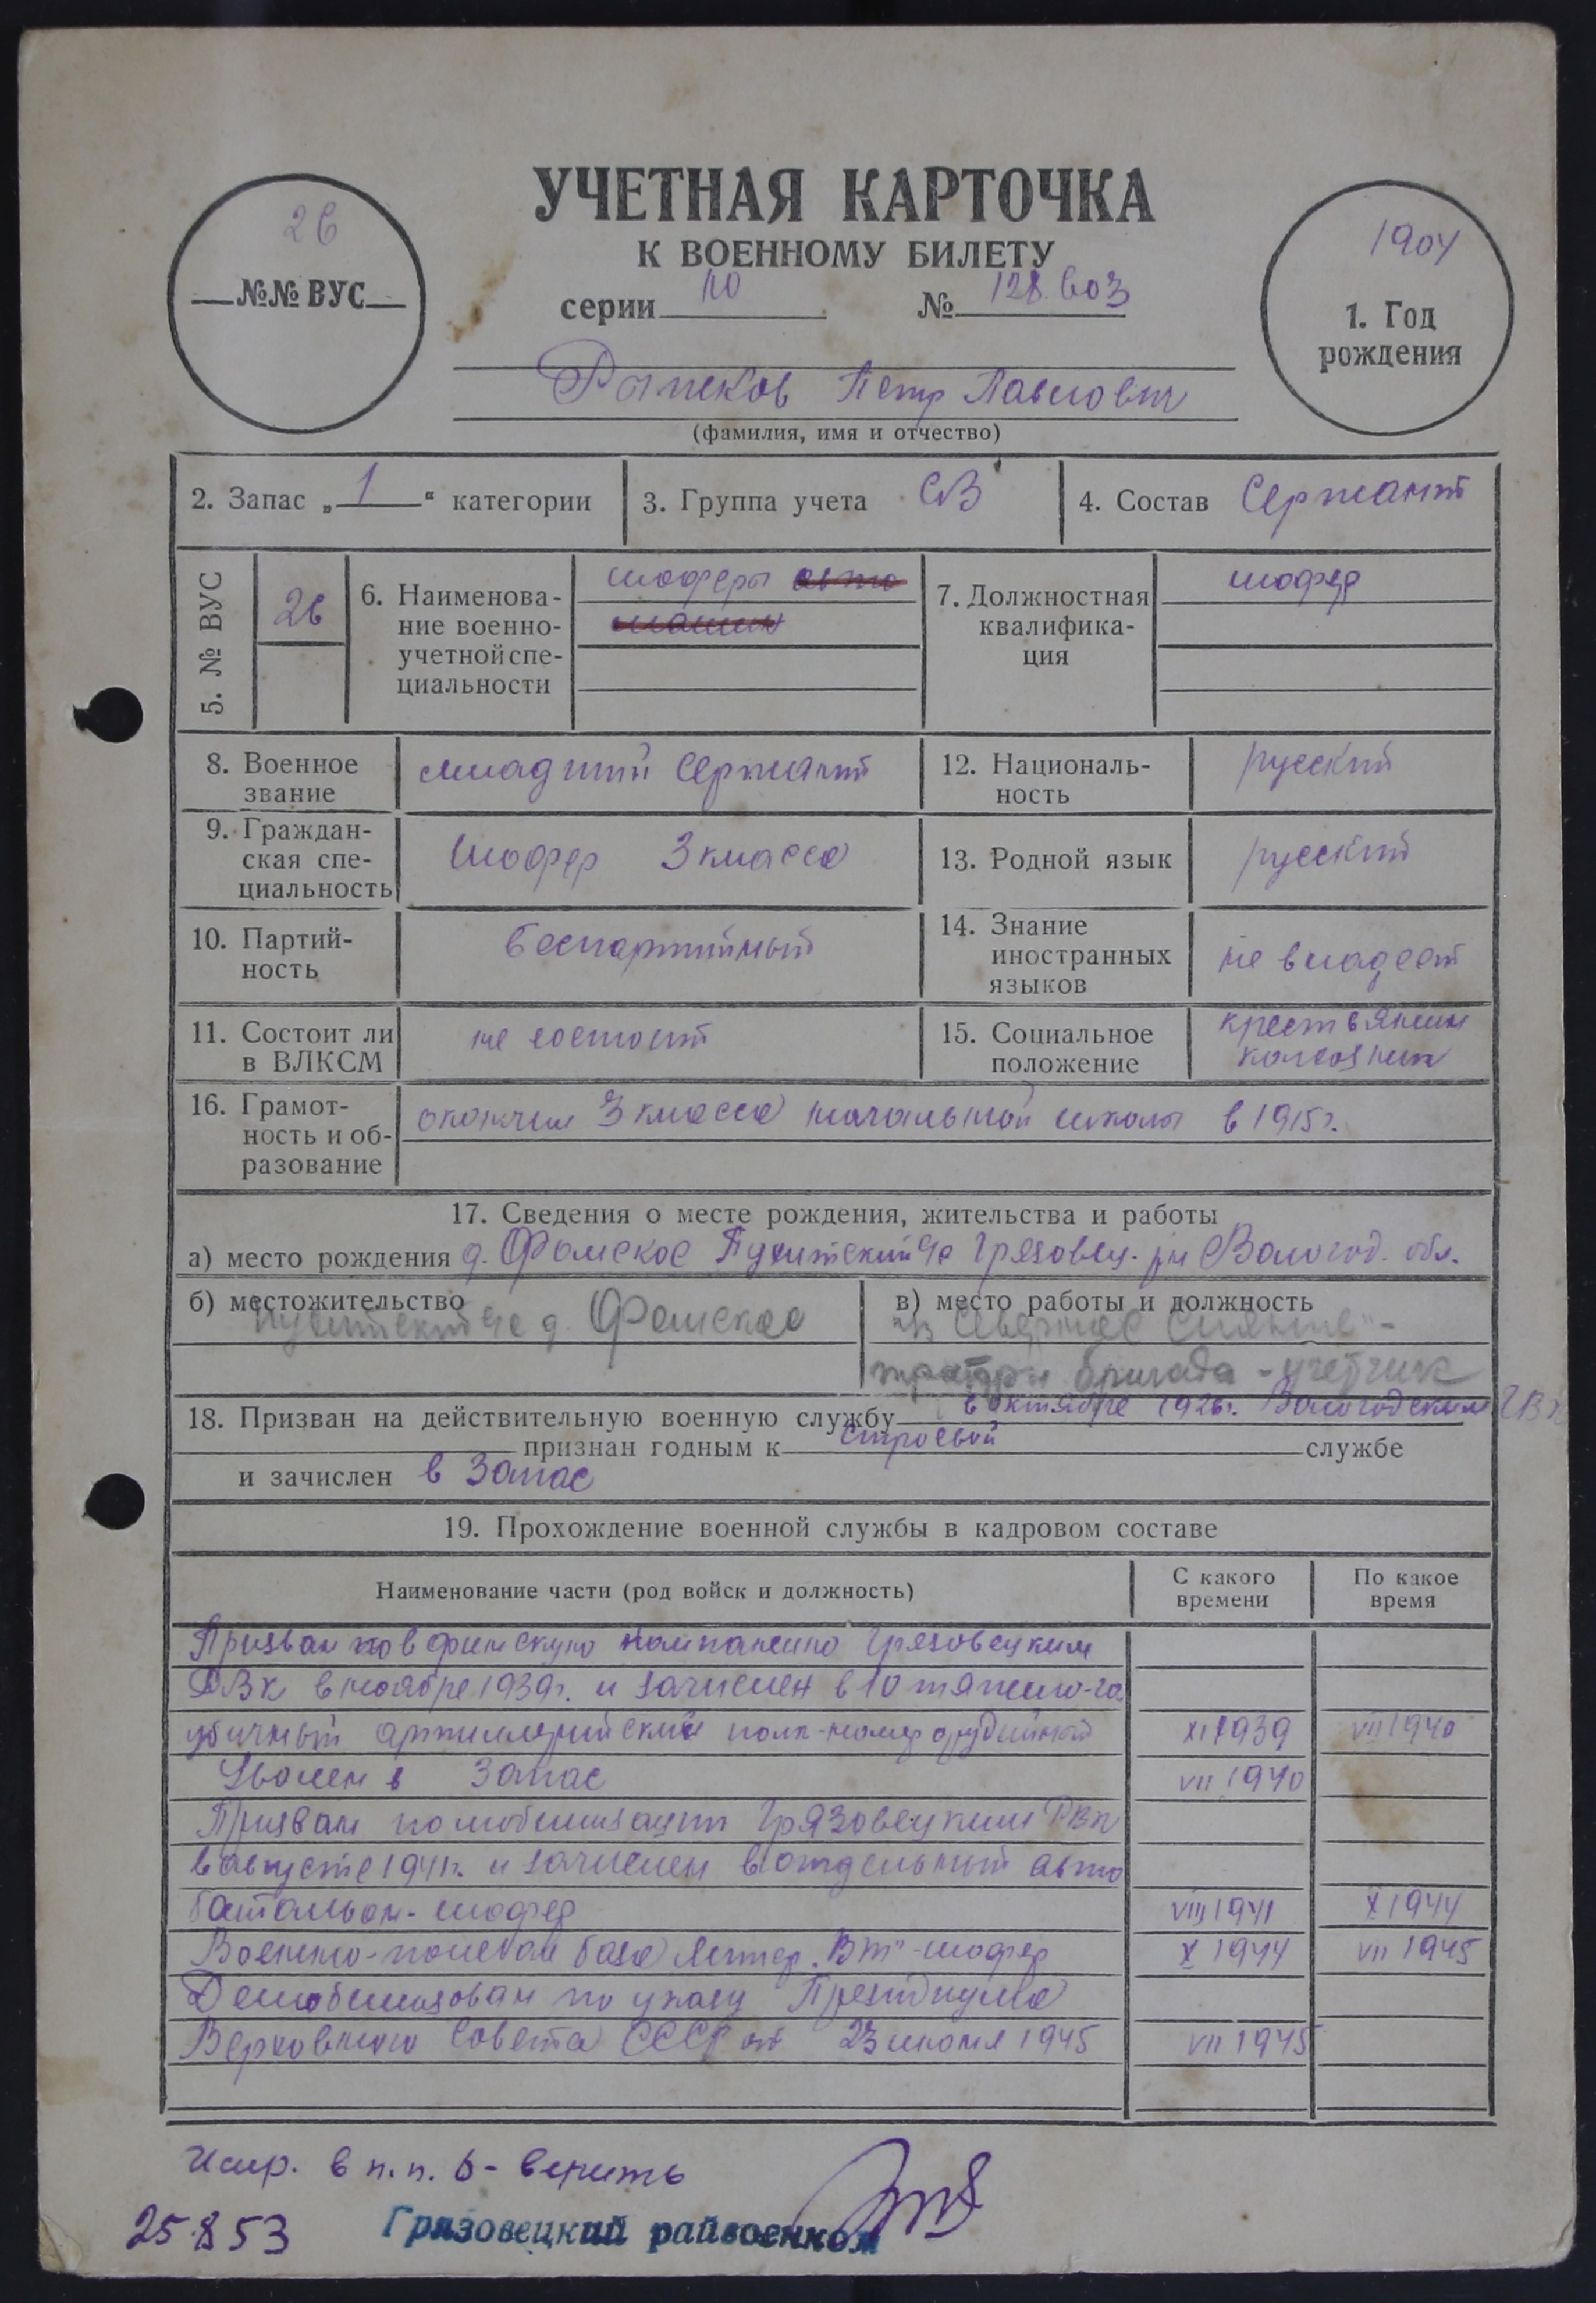 26
№№ ВУС
УЧЕТНАЯ КАРТОЧКА
К ВОЕННОМУ БИЛЕТУ
серии № 128
1904
1. Год
рождения
Петр Павлович
(фамилия, имя и отчество)
2. Запас „1“ категории
3. Группа учета СВ
4. Состав Сержант
5. № ВУС
26
6. Наименова-
ние военно-
учетной спе-
циальности
шоферы авто
машин
7. Должностная
квалифика-
ция
шофер
8. Военное
звание
младший сержант
12. Националь-
ность
русский
9. Граждан-
ская спе-
циальность
Шофер 3 класса
13. Родной язык
русский
10. Партий-
ность
беспартийный
14. Знание
иностранных
языков
не владеет
11. Состоит ли
в ВЛКСМ
не состоит
15. Социальное
положение
крестьянин
колхозник
16. Грамот-
ность и об-
разование
окончил 3 класса начальной школы в 1915 г.
17. Сведения о месте рождения, жительства и работы
а) место рождения д. Фомское с/с Грязовец. р-н Вологод. обл.
б) местожительство
с/с д. Фомское
в) место работы и должность
"Северное Сияние" -
бригада - учетчик
18. Призван на действительную военную службу в октябре 1926 г. Вологодским
признан годным к строевой службе
и зачислен в запас
19. Прохождение военной службы в кадровом составе
Наименование части (род войск и должность)
С какого
времени
По какое
время
Призван в финскую компанию Грязовецким
РВК в ноябре 1939 г. и зачислен в 10 тяжело-га
убичный артиллерийский полк - номер орудийный XI 1939 VII 1940
Уволен в запас VII 1940
Призван по мобилизации Грязовецким РВК
в августе 1941 г. и зачислен в отдельный авто
батальон - шофер VIII 1941 X 1944
Военно-полевая база литер "Вт" - шофер X 1944 VII 1945
Демобилизован по указу Президиума
Верховного Совета СССР от 23 июня 1945 VII 1945
Испр. в п.п. 6 - верить
25.8.53 Грязовецкий райвоенком